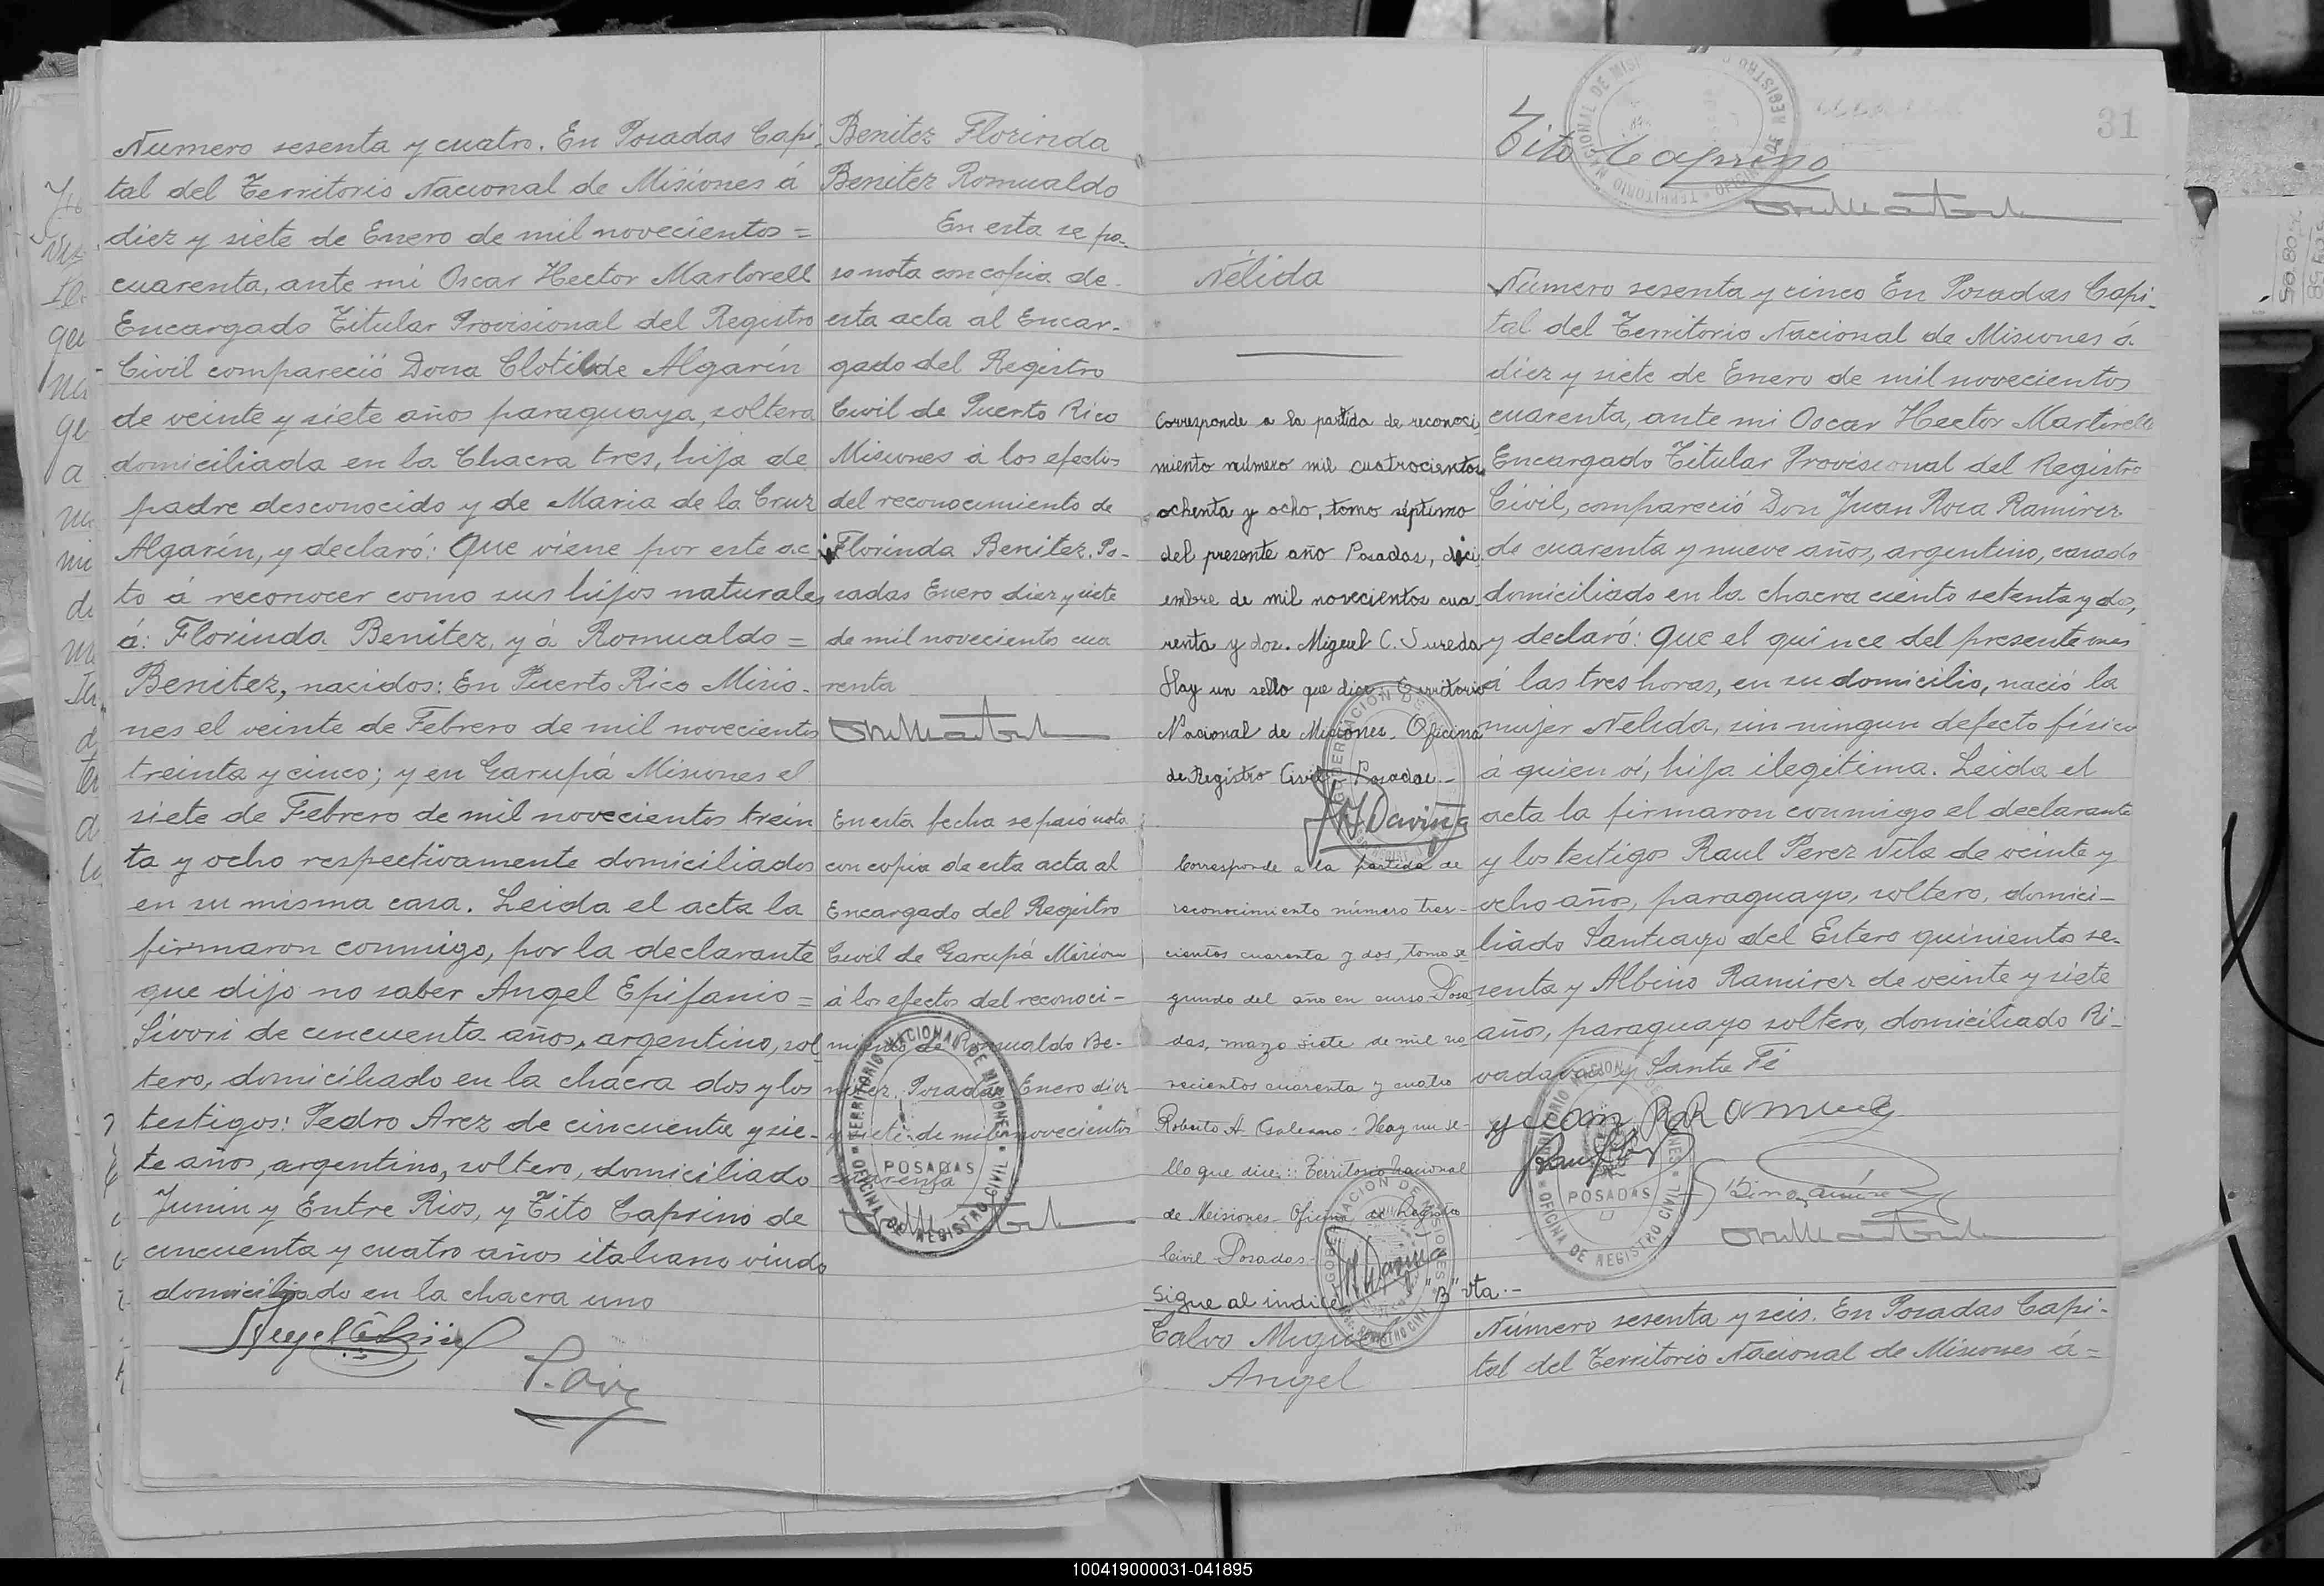 Numero sesenta y cuatro. En Posadas Capi-
tal del Territorio Nacional de Misiones á
diez y siete de Enero de mil novecientos =
cuarenta, ante mi Oscar Hector Martorell
Encargado Titular Provisional del Registro
Civil compareció Dona Clotilde Algarín
de veinte y siete años paraguaya, soltera
domiciliada en la Chacra tres, hija de
padre desconocido y de Maria de la Cruz
Algarín, y declaró: Que viene por este ac-
to á reconocer como sus hijos naturales
á: Florinda Benitez, y á Romualdo =
Benitez, nacidos: En Puerto Rico Misio-
nes el veinte de Febrero de mil novecientos
treinta y cinco; y en Garupá Misiones el
siete de Febrero de mil novecientos trein
ta y ocho respectivamente domiciliados
en su misma casa. Leida el acta la
firmaron conmigo, por la declarante
que dijo no saber Angel Epifanio =
Sivori de cincuenta años, argentino, sol
tero, domiciliado en la chacra dos y los
testigos: Pedro Arez de cincuenta y sie-
te años, argentino, soltero, domiciliado
Junin y Entre Rios, y Tito Caprino de
cincuenta y cuatro años italiano viudo
domiciliado en la chacra uno
Benitez Florinda
Benitez Romualdo
En esta se pa-
so nota con copia de
esta acta al Encar-
gado del Registro
Civil de Puerto Rico
Misiones á los efectos
del reconocimiento de
Florinda Benitez. Po-
sadas Enero diez y siete
de mil novecientos cua
renta
En esta fecha se pasó nota
con copia de esta acta al
Encargado del Registro
Civil de Garupá Mision
á los efectos del reconoci-
miento de Romualdo Be-
nitez. Posadas Enero diez
y siete de mil novecientos
cuarenta
TERRITORIO NACIONAL DE MISIONES
POSADAS
OFICINA DE REGISTRO CIVIL
31
Tito Caprino
Nélida
Corresponde a la partida de reconoci
miento número mil cuatrocientos
ochenta y ocho, tomo séptimo
del presente año Posadas, dici
embre de mil novecientos cua-
renta y dos. Miguel C. Sureda
Hay un sello que dice: Territorio
Nacional de Misiones. Oficina
de Registro Civil - Posadas -
Corresponde a la partida de
reconocimiento número tres-
cientos cuarenta y dos, tomo se
gundo del año en curso - Posa
das, marzo siete de mil no
vecientos cuarenta y cuatro
Roberto A.
Hay un se-
llo que dice: Territorio Nacional
de Misiones - Oficina de Registro
Civil - Posadas -
Sigue al indice "B" vta.-
Calvo Miguel
Angel
Número sesenta y cinco En Posadas Capi-
tal del Territorio Nacional de Misiones á
diez y siete de Enero de mil novecientos
cuarenta, ante mi Oscar Hector Martorell
Encargado Titular Provisional del Registro
Civil, compareció Don Juan Rosa Ramirez
de cuarenta y nueve años, argentino, casado
domiciliado en la chacra ciento setenta y dos,
y declaró: Que el quince del presente mes
á las tres horas, en su domicilio, nació la
mujer Nelida, sin ningun defecto físico
á quien ví, hija ilegítima. Leida el
acta la firmaron conmigo el declarante
y los testigos Raul Perez Vila de veinte y
ocho años, paraguayo, soltero, domici-
liado Santiago del Estero quinientos se-
senta y Albino Ramirez de veinte y siete
años, paraguayo soltero, domiciliado Ri-
vadavia y Santa Fé
TERRITORIO NACIONAL DE MISIONES
POSADAS
OFICINA DE REGISTRO CIVIL
Número sesenta y seis. En Posadas Capi-
tal del Territorio Nacional de Misiones á =
100419000031-041895